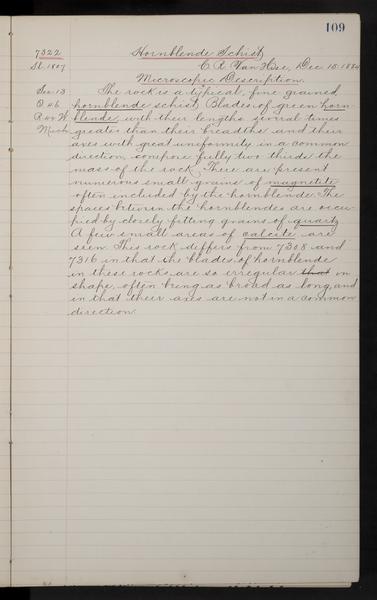 109
7322 Hornblende Schist
Sl. 1807 C. R. Van Hise, Dec 15 1884
Microscopic Description.
Sec. 13 The rock is a typical, fine grained
O 46 hornblende schist. Blades of green horn-
R 42 W. blende, with their lengths several times
Mich. greater than their breadths and their
axes with great uniformity in a common
direction, compose fully two thirds the
mass of the rock. There are present
numerous small grains of magnetite,
often included by the hornblende. The
spaces between the hornblendes are occu-
pied by closely fitting grains of quartz
A few small areas of calcite are
seen. This rock differs from 7308 and
7316 in that the blades of hornblende
in these rocks are so irregular that in
shape, often being as broad as long, and
in that their axes are not in a common
direction.